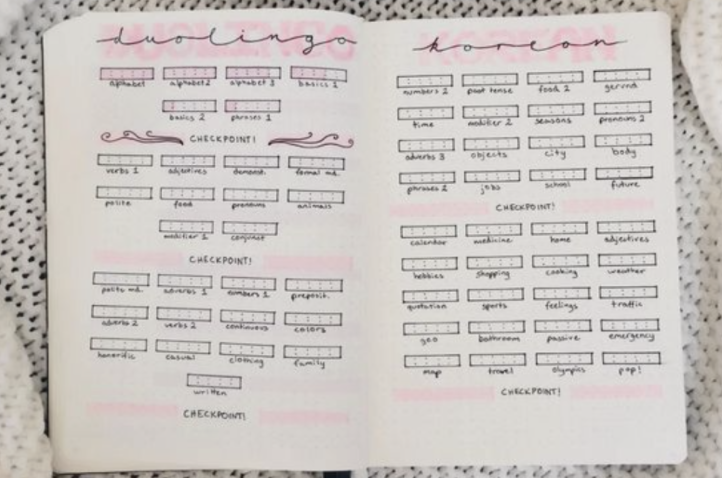 duolingo
alphabet alphabet 2 alphabet 3 basics 1
basics 2 phrases 1
CHECKPOINT!
verbs 1 adjectives demonst. formal md.
polite food pronouns animals
modifier 1 conjunct
CHECKPOINT!
polite md. adverbs 1 numbers 1 preposit.
adverbs 2 verbs 2 continuous colors
honorific casual clothing family
written
CHECKPOINT!
korean
numbers 2 past tense food 2 gerund
time modifier 2 seasons pronouns 2
adverbs 3 objects city body
phrases 2 jobs school future
CHECKPOINT!
calendar medicine home adjectives
hobbies shopping cooking weather
quotation sports feelings traffic
geo bathroom passive emergency
map travel olympics pop!
CHECKPOINT!